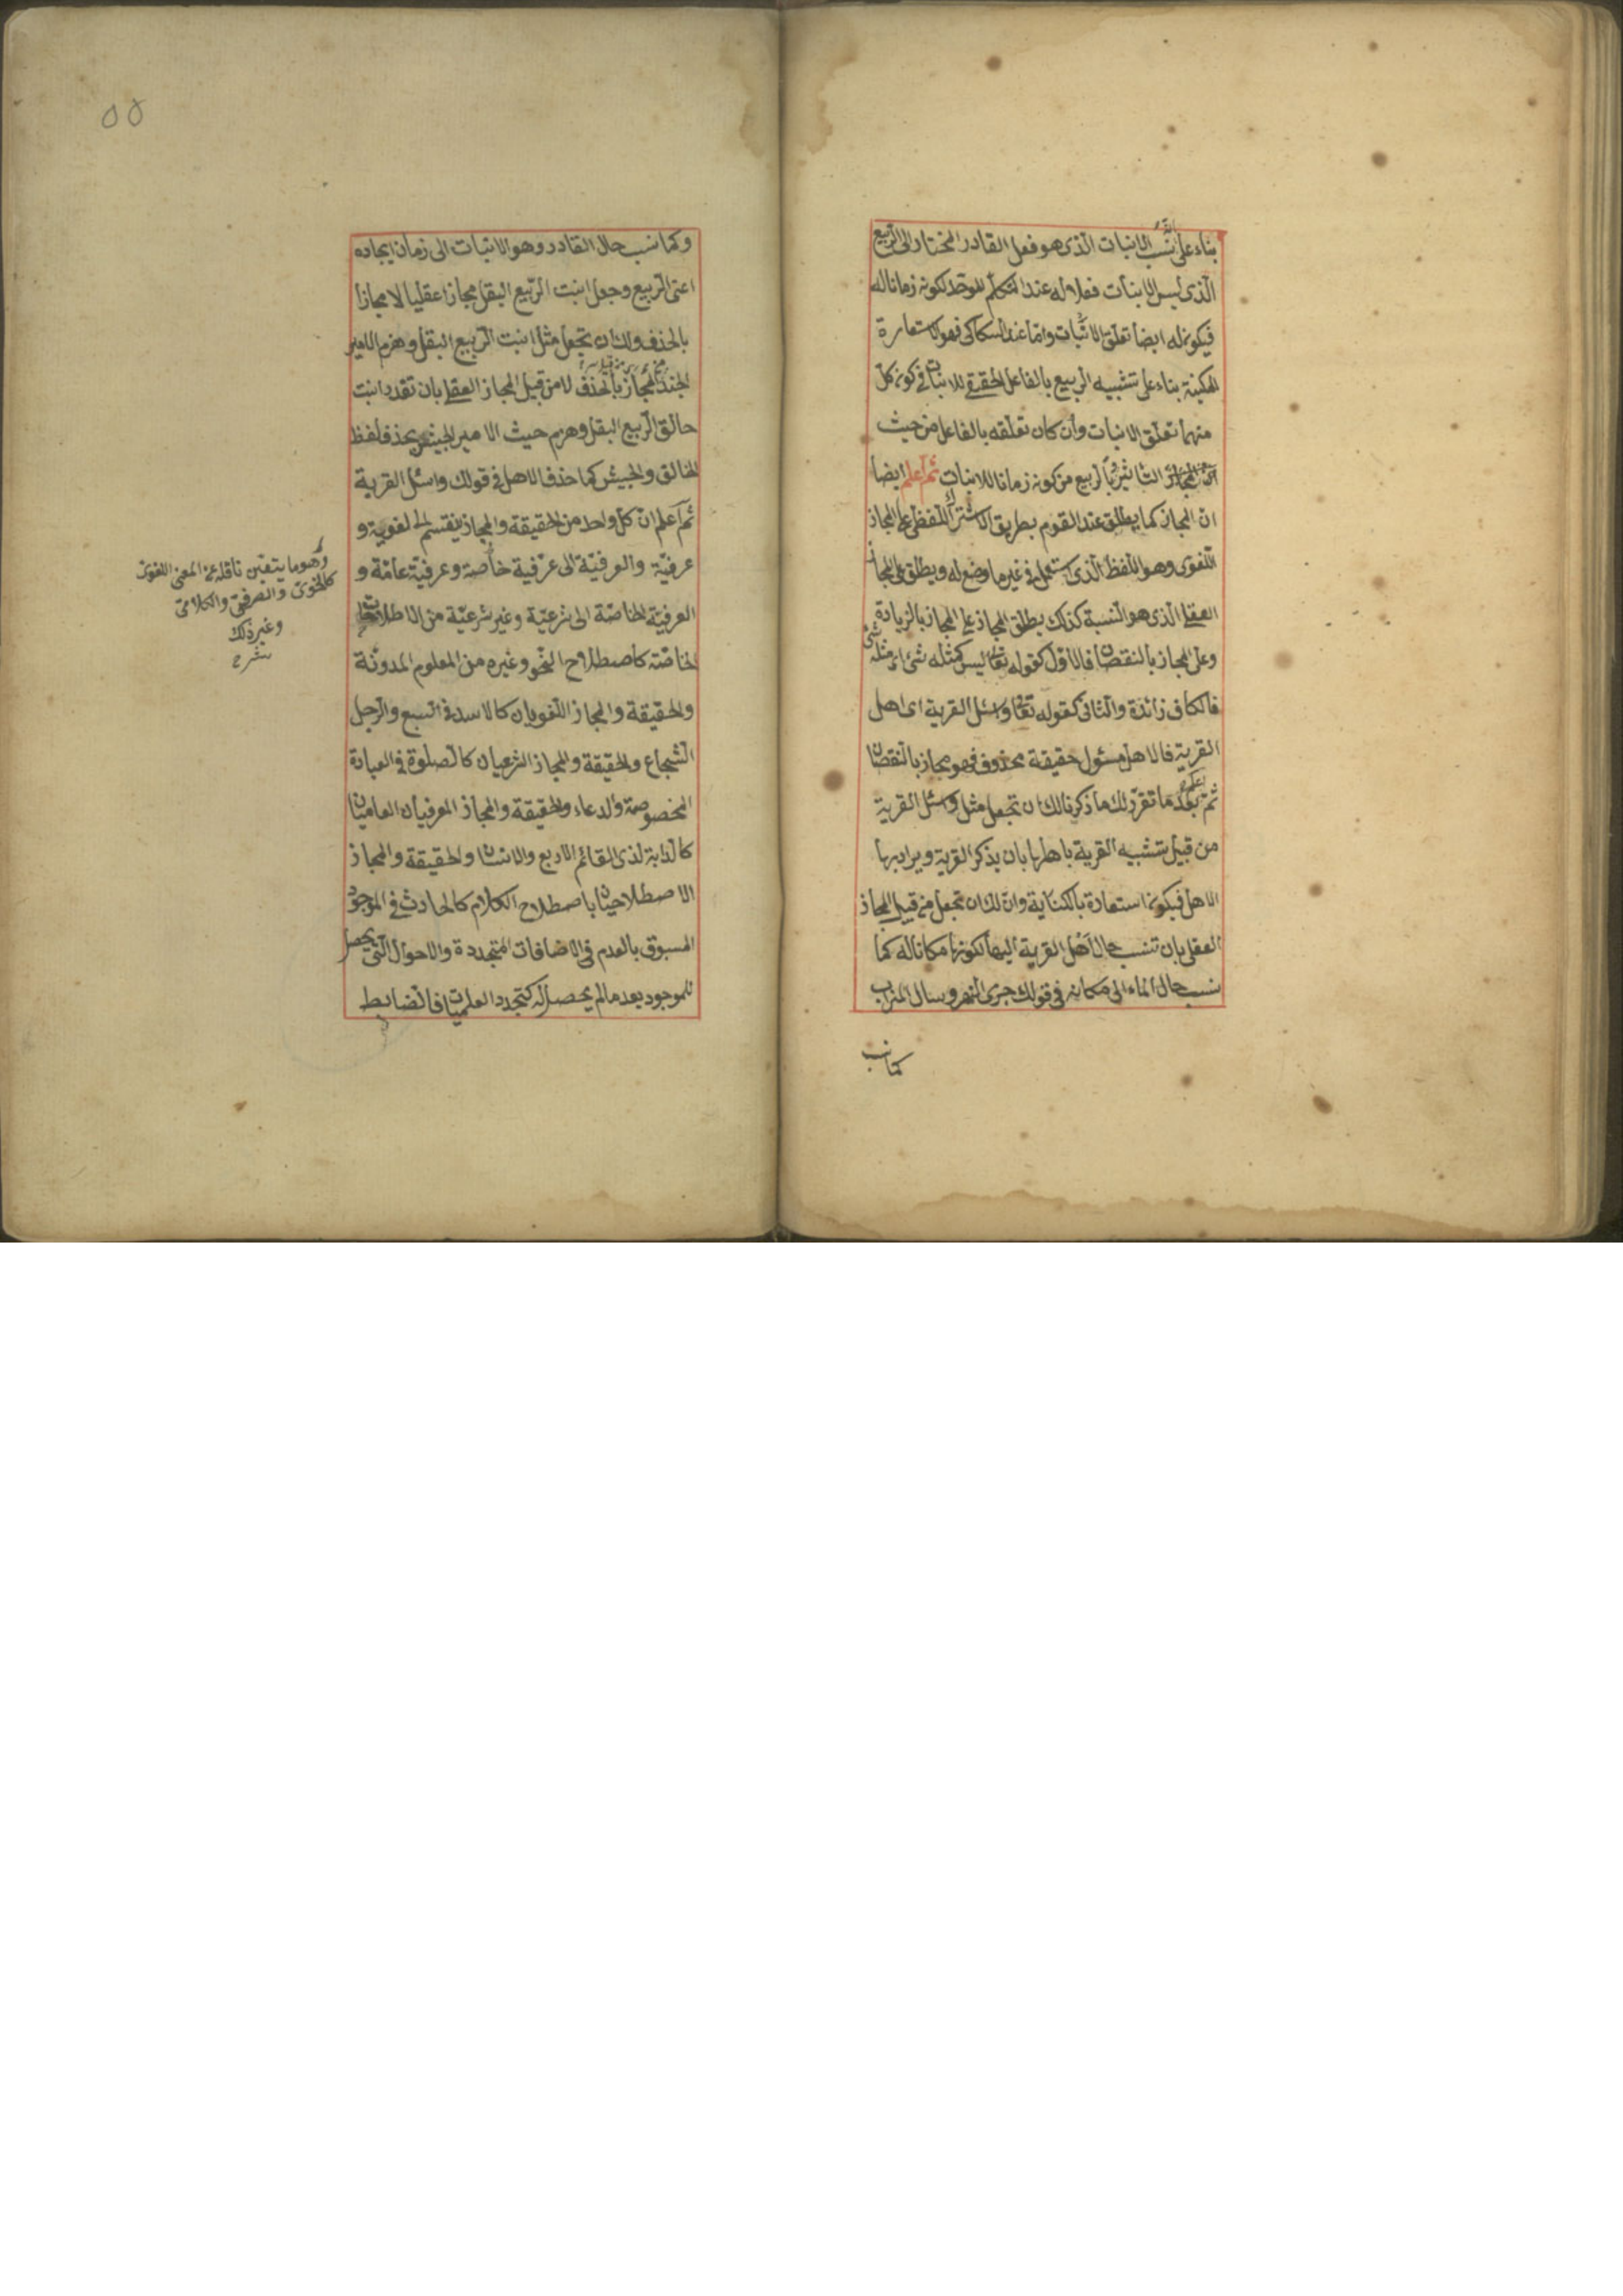 بناء على نسب الانبات الذى هو فعل القادر المختار الى الربيع
الذى ليس الانبات فعلا له عند المتكلم الموحد لكونه زمانا له
فيكون له ايضا تعلق الانبات واما عند السكاكى فهو الاستعارة
المكنية بناء على تشبيه الربيع بالفاعل الحقيقى للانبات فى كون كل
منهما تعلق الانبات وان كان تعلقه بالفاعل من حيث
بالربيع من كونه زمانا للانبات ثم اعلم ايضا
ان المجاز كما يطلق عند القوم بطريق الاشتراك اللفظى على المجاز
اللغوى وهو اللفظ الذى استعمل فى غير ما وضع له ويطلق على المجاز
العقلى الذى هو النسبة كذلك يطلق المجاز على المجاز بالزيادة
وعلى المجاز بالنقصان فالاول كقوله تعالى ليس كمثله شئ اى مثله شئ
فالكاف زائدة والثانى كقوله تعالى واسئل القرية اى اهل
القرية فالاهل مسئول حقيقة محذوف فهو مجاز بالنقصان
ثم بعد ما تقرر لك ما ذكرنا لك ان تجعل مثل واسئل القرية
من قبيل تشبيه القرية باهلها بان يذكر القرية ويراد بها
الاهل فيكون استعارة بالكناية وان لك ان تجعل من قبيل المجاز
العقلى بان تنسب حال اهل القرية اليها لكونها مكانا له كما
نسب حال الماء الى مكانه فى قولك جرى النهر وسال الميزاب
كما نسب
٥٥
وكما نسب حال القادر وهو الانبات الى زمان ايجاده
اعنى الربيع وجعل انبت الربيع البقل مجازا عقليا لا مجازا
بالحذف ولك ان تجعل مثل انبت الربيع البقل وهزم الامير
الجند مجاز بالحذف لا من قبيل المجاز العقلى بان تقدر انبت
خالق الربيع البقل وهزم جيش الامير الجيش بحذف لفظ
الخالق والجيش كما حذف الاهل فى قولك واسئل القرية
ثم اعلم ان كل واحد من الحقيقة والمجاز ينقسم الى لغوية و
عرفية والعرفية الى عرفية خاصة وعرفية عامة و
العرفية الخاصة الى شرعية وغير شرعية من الاصطلاحات
الخاصة كاصطلاح النحو وغيره من العلوم المدونة
والحقيقة والمجاز اللغويان كالاسد فى السبع والرجل
الشجاع والحقيقة والمجاز الشرعيان كالصلوة فى العبادة
المخصوصة والدعاء والحقيقة والمجاز العرفيان العاميان
كالدابة لذى القائم الاربع والانسان والحقيقة والمجاز
الاصطلاحيان باصطلاح الكلام كالحادث فى الموجود
المسبوق بالعدم فى الاضافات المتجددة والاحوال التى يحصل
للموجود بعد ما لم يحصل له كتجدد العلميات فالضابط
وهو ما يتعين ناقله عن المعنى اللغوى
كالنحوى والصرفى والكلامى
وغير ذلك
شرح